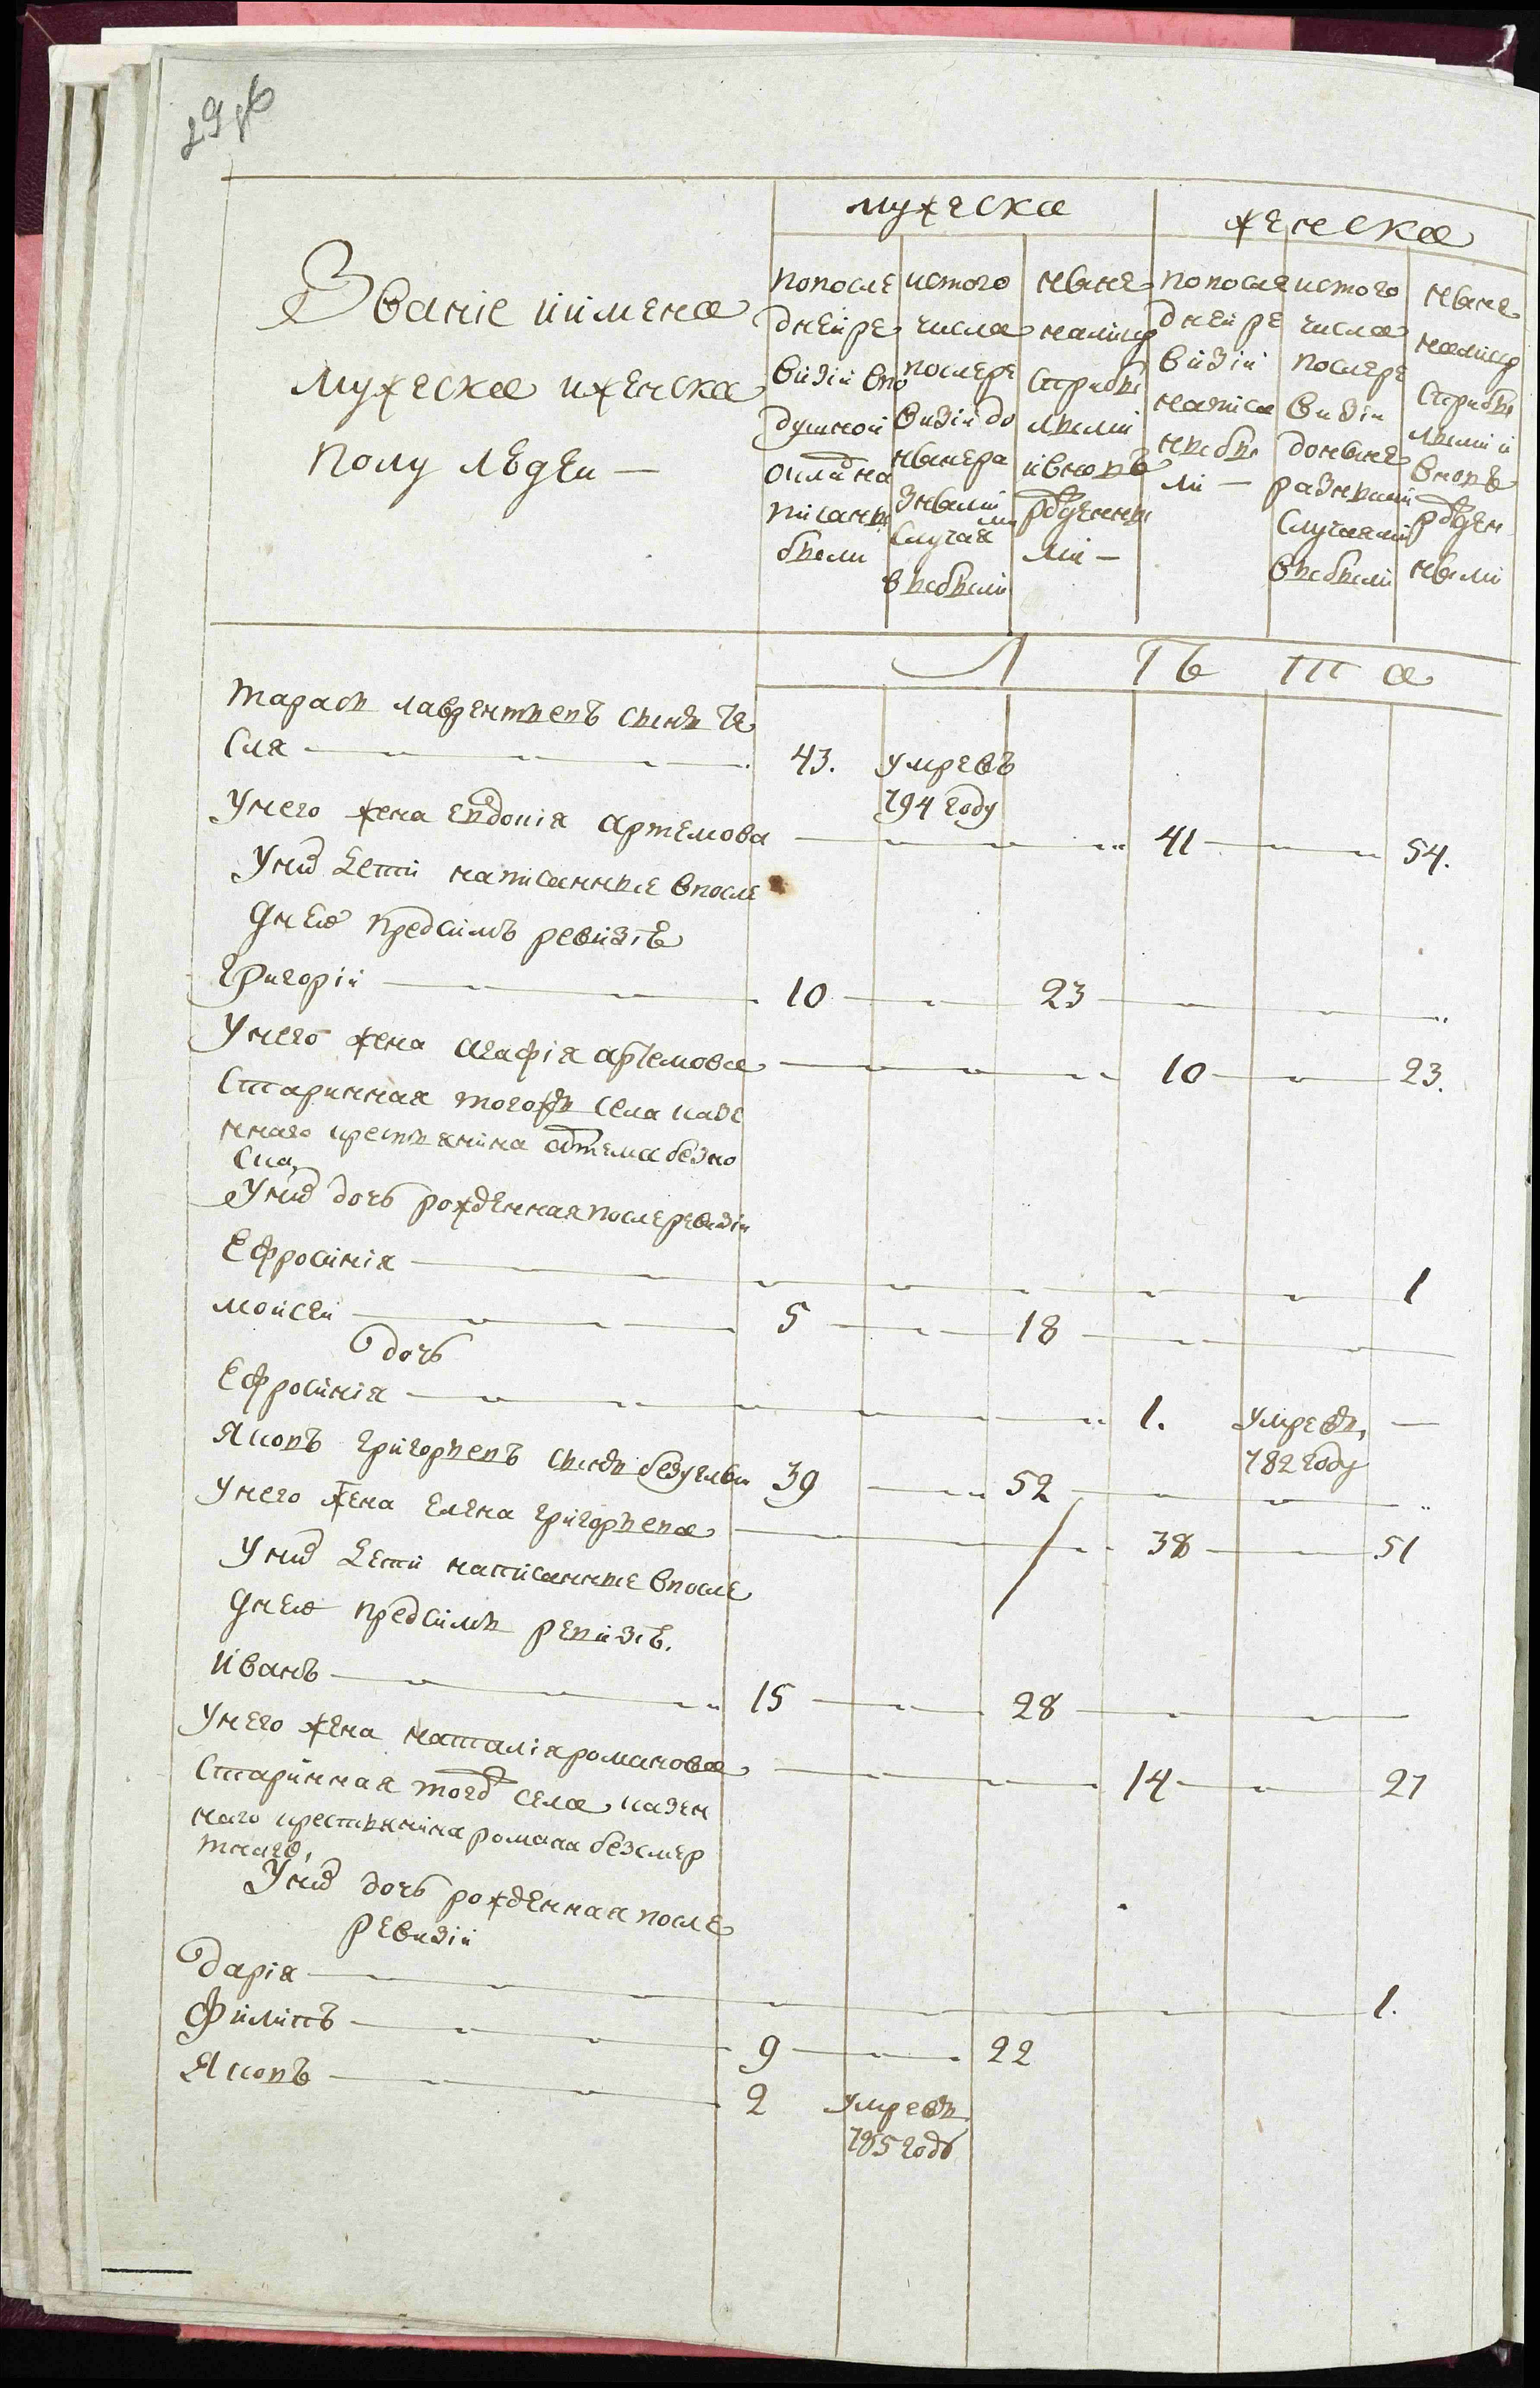 мужеска
женска
Званіе иимена
мужеска иженска
полу людеи —
попосле
днеи ре
визіи впо
душнои
писаны
были
истого
числа
послере
визіи до
ныне ра
зными
случая
ми
выбыли
ныне
налицо
старыѣ
лыми
ивновь
рожденны
ми —
попосле
днеи ре
визіи
написа
ны бы
ли —
истого
числа
послере
визіи
доныне
разными
случаями
выбыли
ныне
налицо
ивновь
рожден
ными
Л ѣ т а
тарасъ лаврентьевъ сынъ
сля 43. умревъ
794 году
Унего жена евдокія артемова 41 54.
Унихъ дети написанные впосле
днею предсимъ ревизіѣ
Григоріи 10 23
Унего жена агафія артемова 10 23.
Старинная тогожъ села казе
ннаго крестьянина артема безно
са,
Унихъ дочь рожденная послеревизіи
Ефросинія 1
Моисеи 5 18
дочь
Ефросинія 1. умревъ,
782 году
Яковъ григорьевъ сынъ 39 52
Унего жена елена григорьева 38 51
Унихъ дети написанные впосле
днею предсимъ ревизіѣ.
Иванъ 15 28
Унего жена наталія романова 14 27
Старинная тогожъ села казен
наго крестьянина романа безсмер
тнаго,
Унихъ дочь рожденная после
ревизіи
Дарія 1.
Филипъ 9 22
Яковъ 2 умревъ
785 годъ